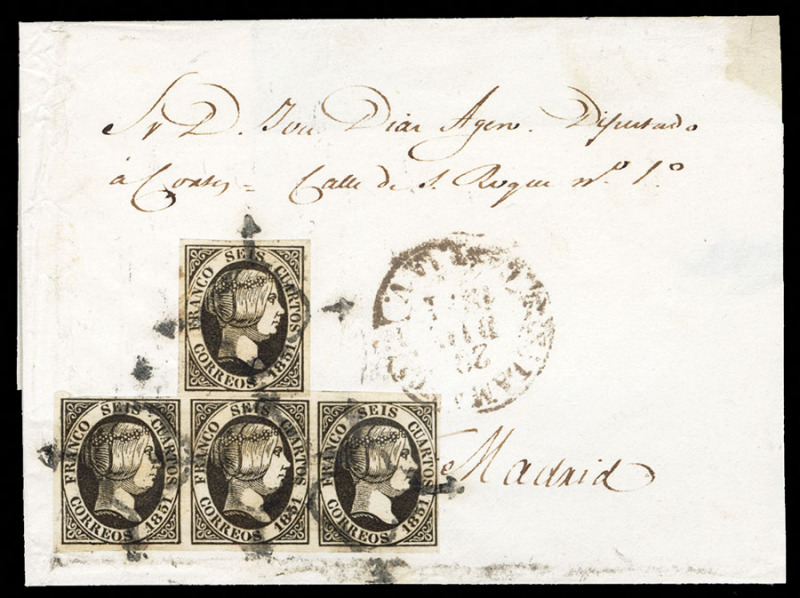 Sr D. José Diaz Agero. Diputado
á Cortes = Calle de S. Roque nº 1º
FRANCO SEIS CUARTOS
CORREOS 1851
Madrid
FRANCO SEIS CUARTOS
CORREOS 1851
FRANCO SEIS CUARTOS
CORREOS 1851
FRANCO SEIS CUARTOS
CORREOS 1851